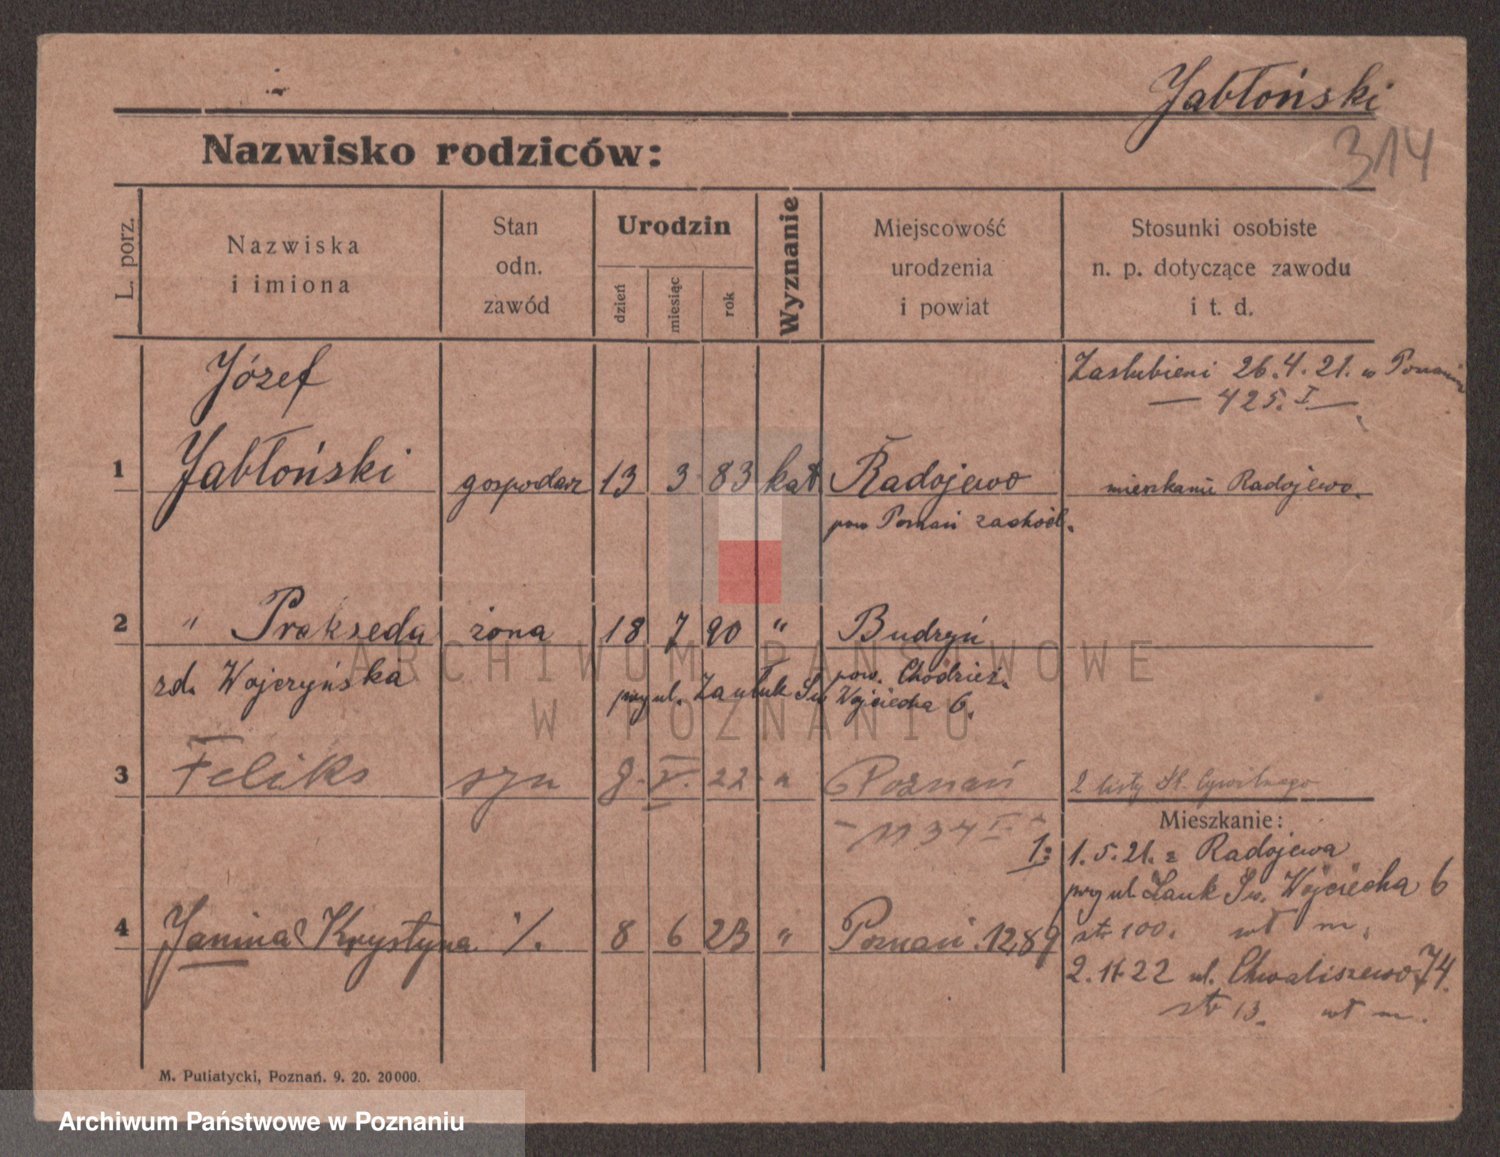 Jabłoński
314
Nazwisko rodziców:
L. porz.
Nazwiska
i imiona
Stan
odn.
zawód
Urodzin
dzień
miesiąc
rok
Wyznanie
Miejscowość
urodzenia
i powiat
Stosunki osobiste
n. p. dotyczące zawodu
i t. d.
Józef
Zaslubieni 26.4.21. w Poznaniu
— 425. I —
1 Jabłoński gospodarz 13 3 83 kat Radojewo mieszkanie Radojewo.
pow Poznań zachód.
2 " Prakseda żona 18 7 90 " Budzyń
zd. Wojczyńska
pow. Chodzież.
przy ul. Zaułuk Św Wojciecha 6.
3 Feliks syn 8. V. 22. " Poznań
2 listy St. Cywilnego
- 1134 I. -
Mieszkanie:
1: 1.5.21. z Radojewa
przy ul Zauk Św. Wojciecha 6
str 100. wł m.
4 Janina Krystyna %. 8 6 23 " Poznań. 1289
2. 22 ul. Chwaliszewo 74.
str 13. wł m.
M. Putiatycki, Poznań. 9. 20. 20000.
ARCHIWUM PAŃSTWOWE
W POZNANIU
Archiwum Państwowe w Poznaniu